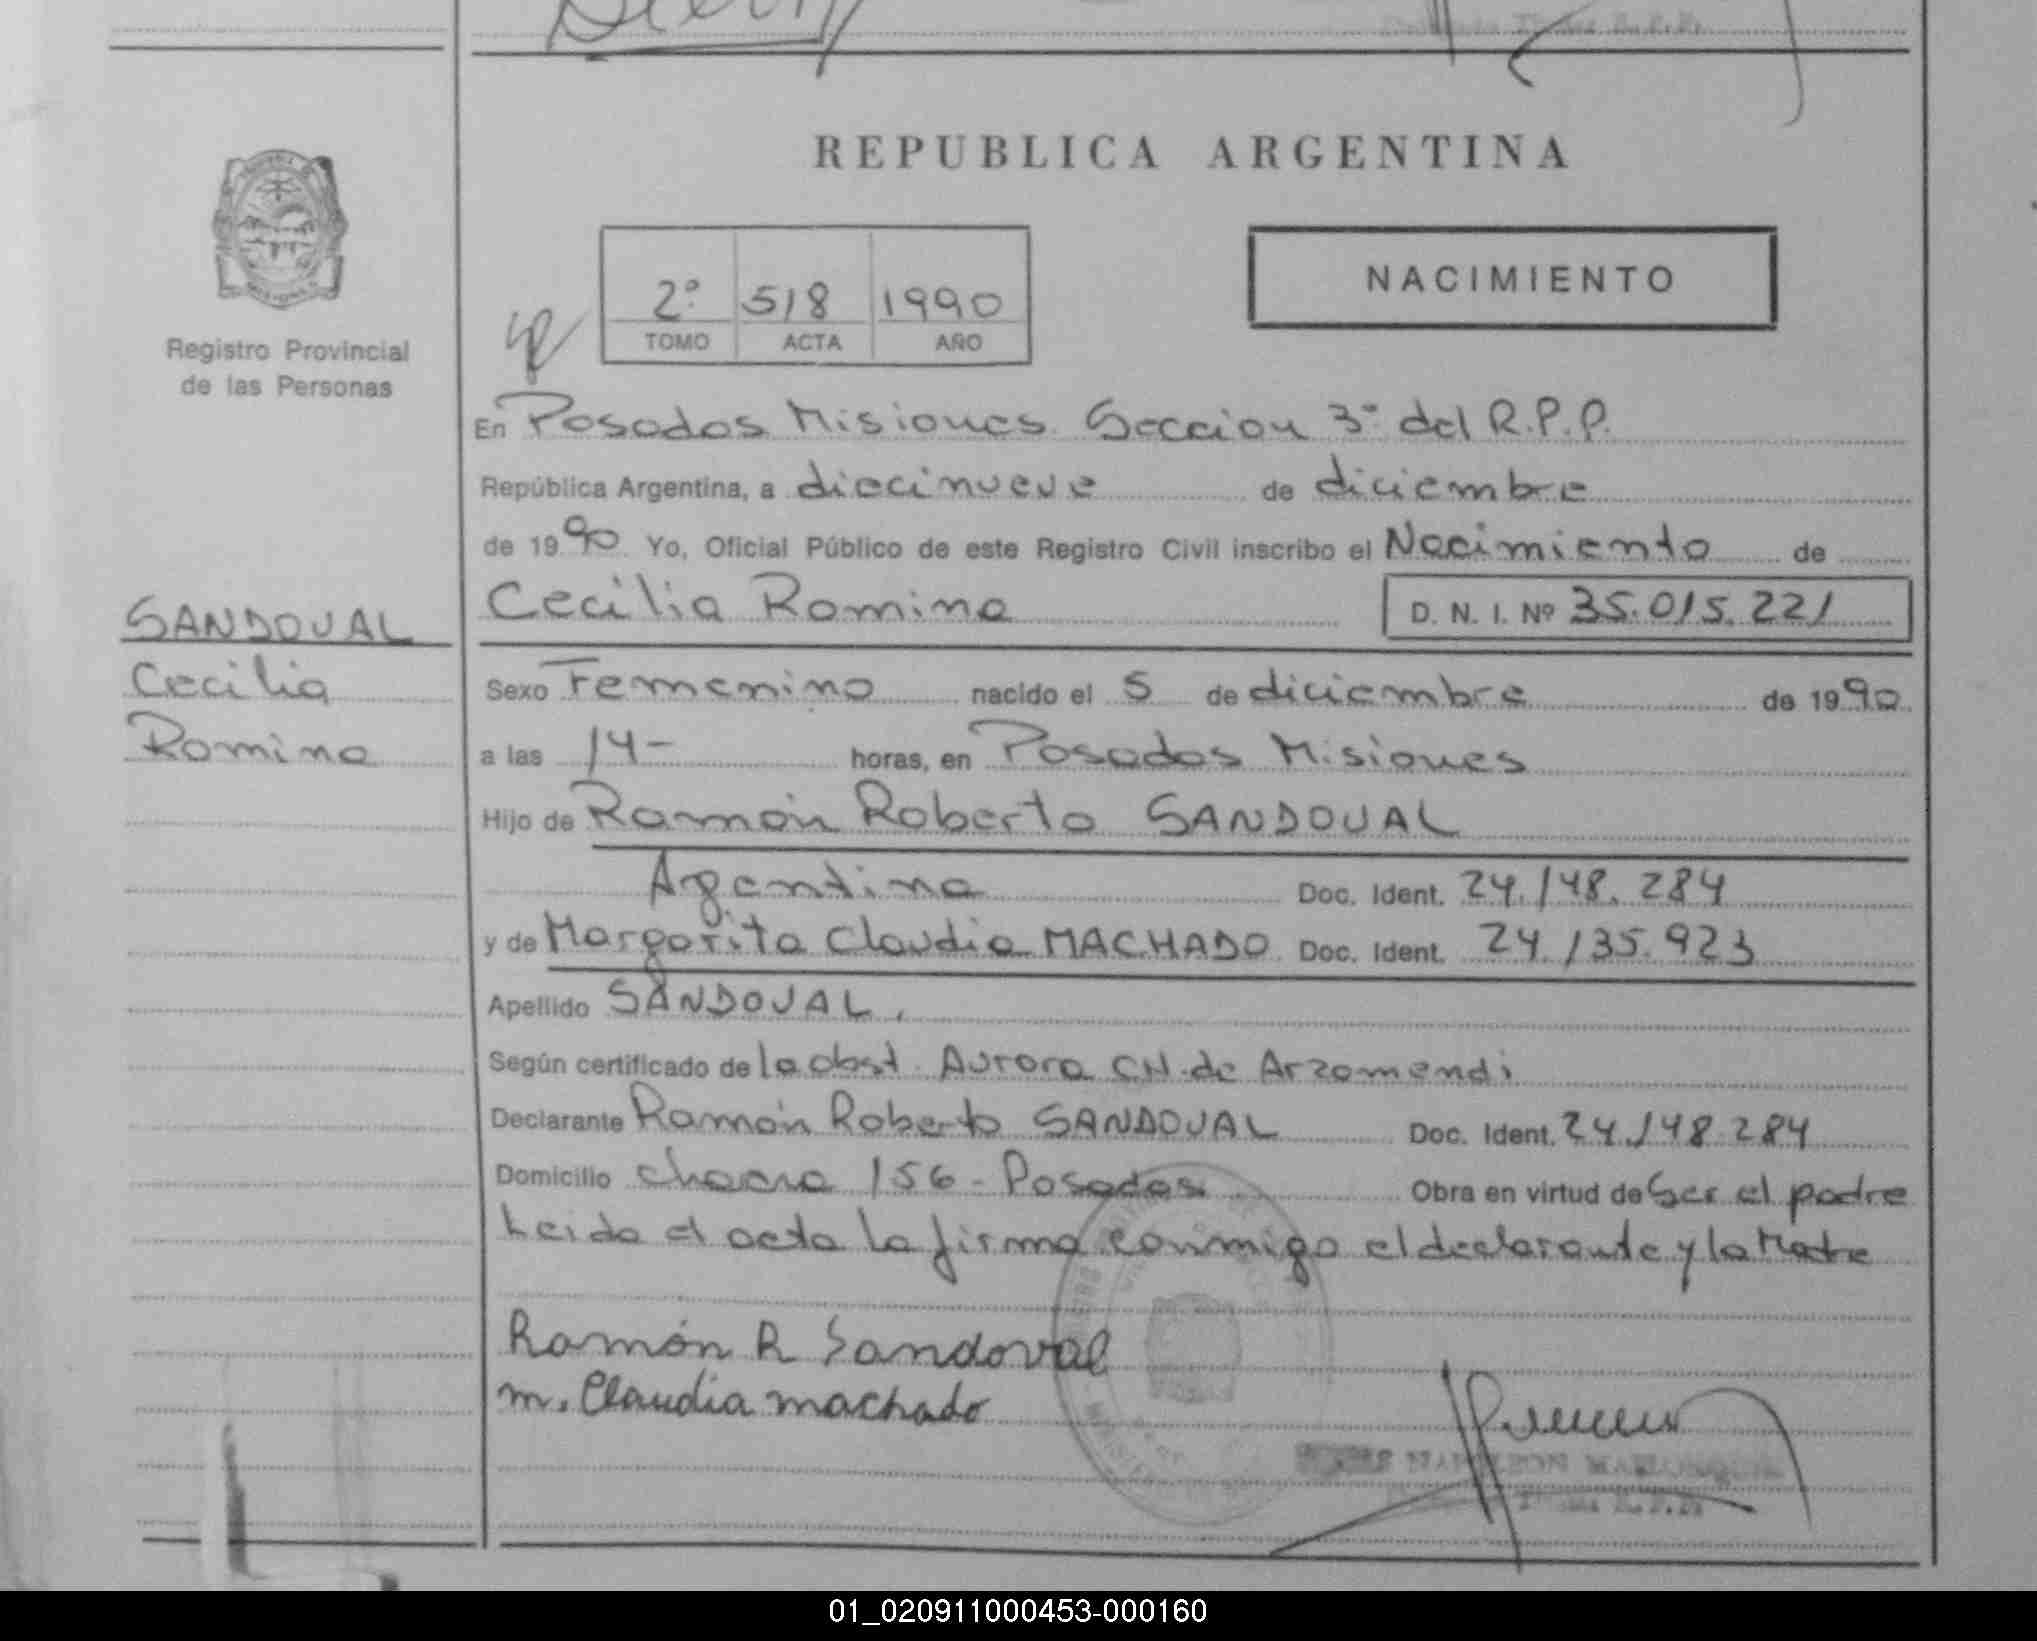 REPUBLICA ARGENTINA
NACIMIENTO
2º 518 1990
TOMO ACTA AÑO
Registro Provincial
de las Personas
En Posadas Misiones Seccion 3ª del R.P.P.
República Argentina, a diecinueve de diciembre
de 1990 Yo, Oficial Público de este Registro Civil inscribo el Nacimiento de
Cecilia Romina D. N. I. Nº 35.015.221
SANDOVAL
Cecilia
Romina
Sexo Femenino nacido el 5 de diciembre de 1990
a las 14- horas, en Posadas Misiones
Hijo de Ramón Roberto SANDOVAL
Argentina Doc. Ident. 24.148.284
y de Margarita Claudia MACHADO Doc. Ident. 24.135.923
Apellido SANDOVAL.
Según certificado de la obst. Aurora CH. de Arzamendi
Declarante Ramón Roberto SANDOVAL Doc. Ident. 24.148.284
Domicilio chacra 156 - Posadas Obra en virtud de Ser el padre
Leida el acta la firma conmigo el declarante y la Madre
Ramón R Sandoval
m. Claudia machado
NAPOLEON
01_020911000453-000160